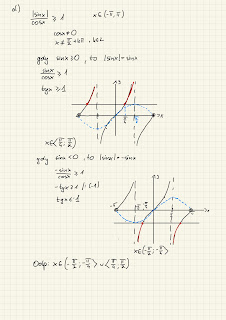 d)
|sinx|/cosx ≥ 1    x∈(-π, π)
cosx ≠ 0
x ≠ π/2 + kπ, k∈Z
gdy sinx ≥ 0, to |sinx| = sinx
sinx/cosx ≥ 1
tgx ≥ 1
x∈⟨π/4; π/2)
gdy sinx < 0, to |sinx| = -sinx
-sinx/cosx ≥ 1
-tgx ≥ 1 /·(-1)
tgx ≤ -1
x∈(-π/2; -π/4⟩
Odp: x∈(-π/2; -π/4⟩ ∪ ⟨π/4; π/2)